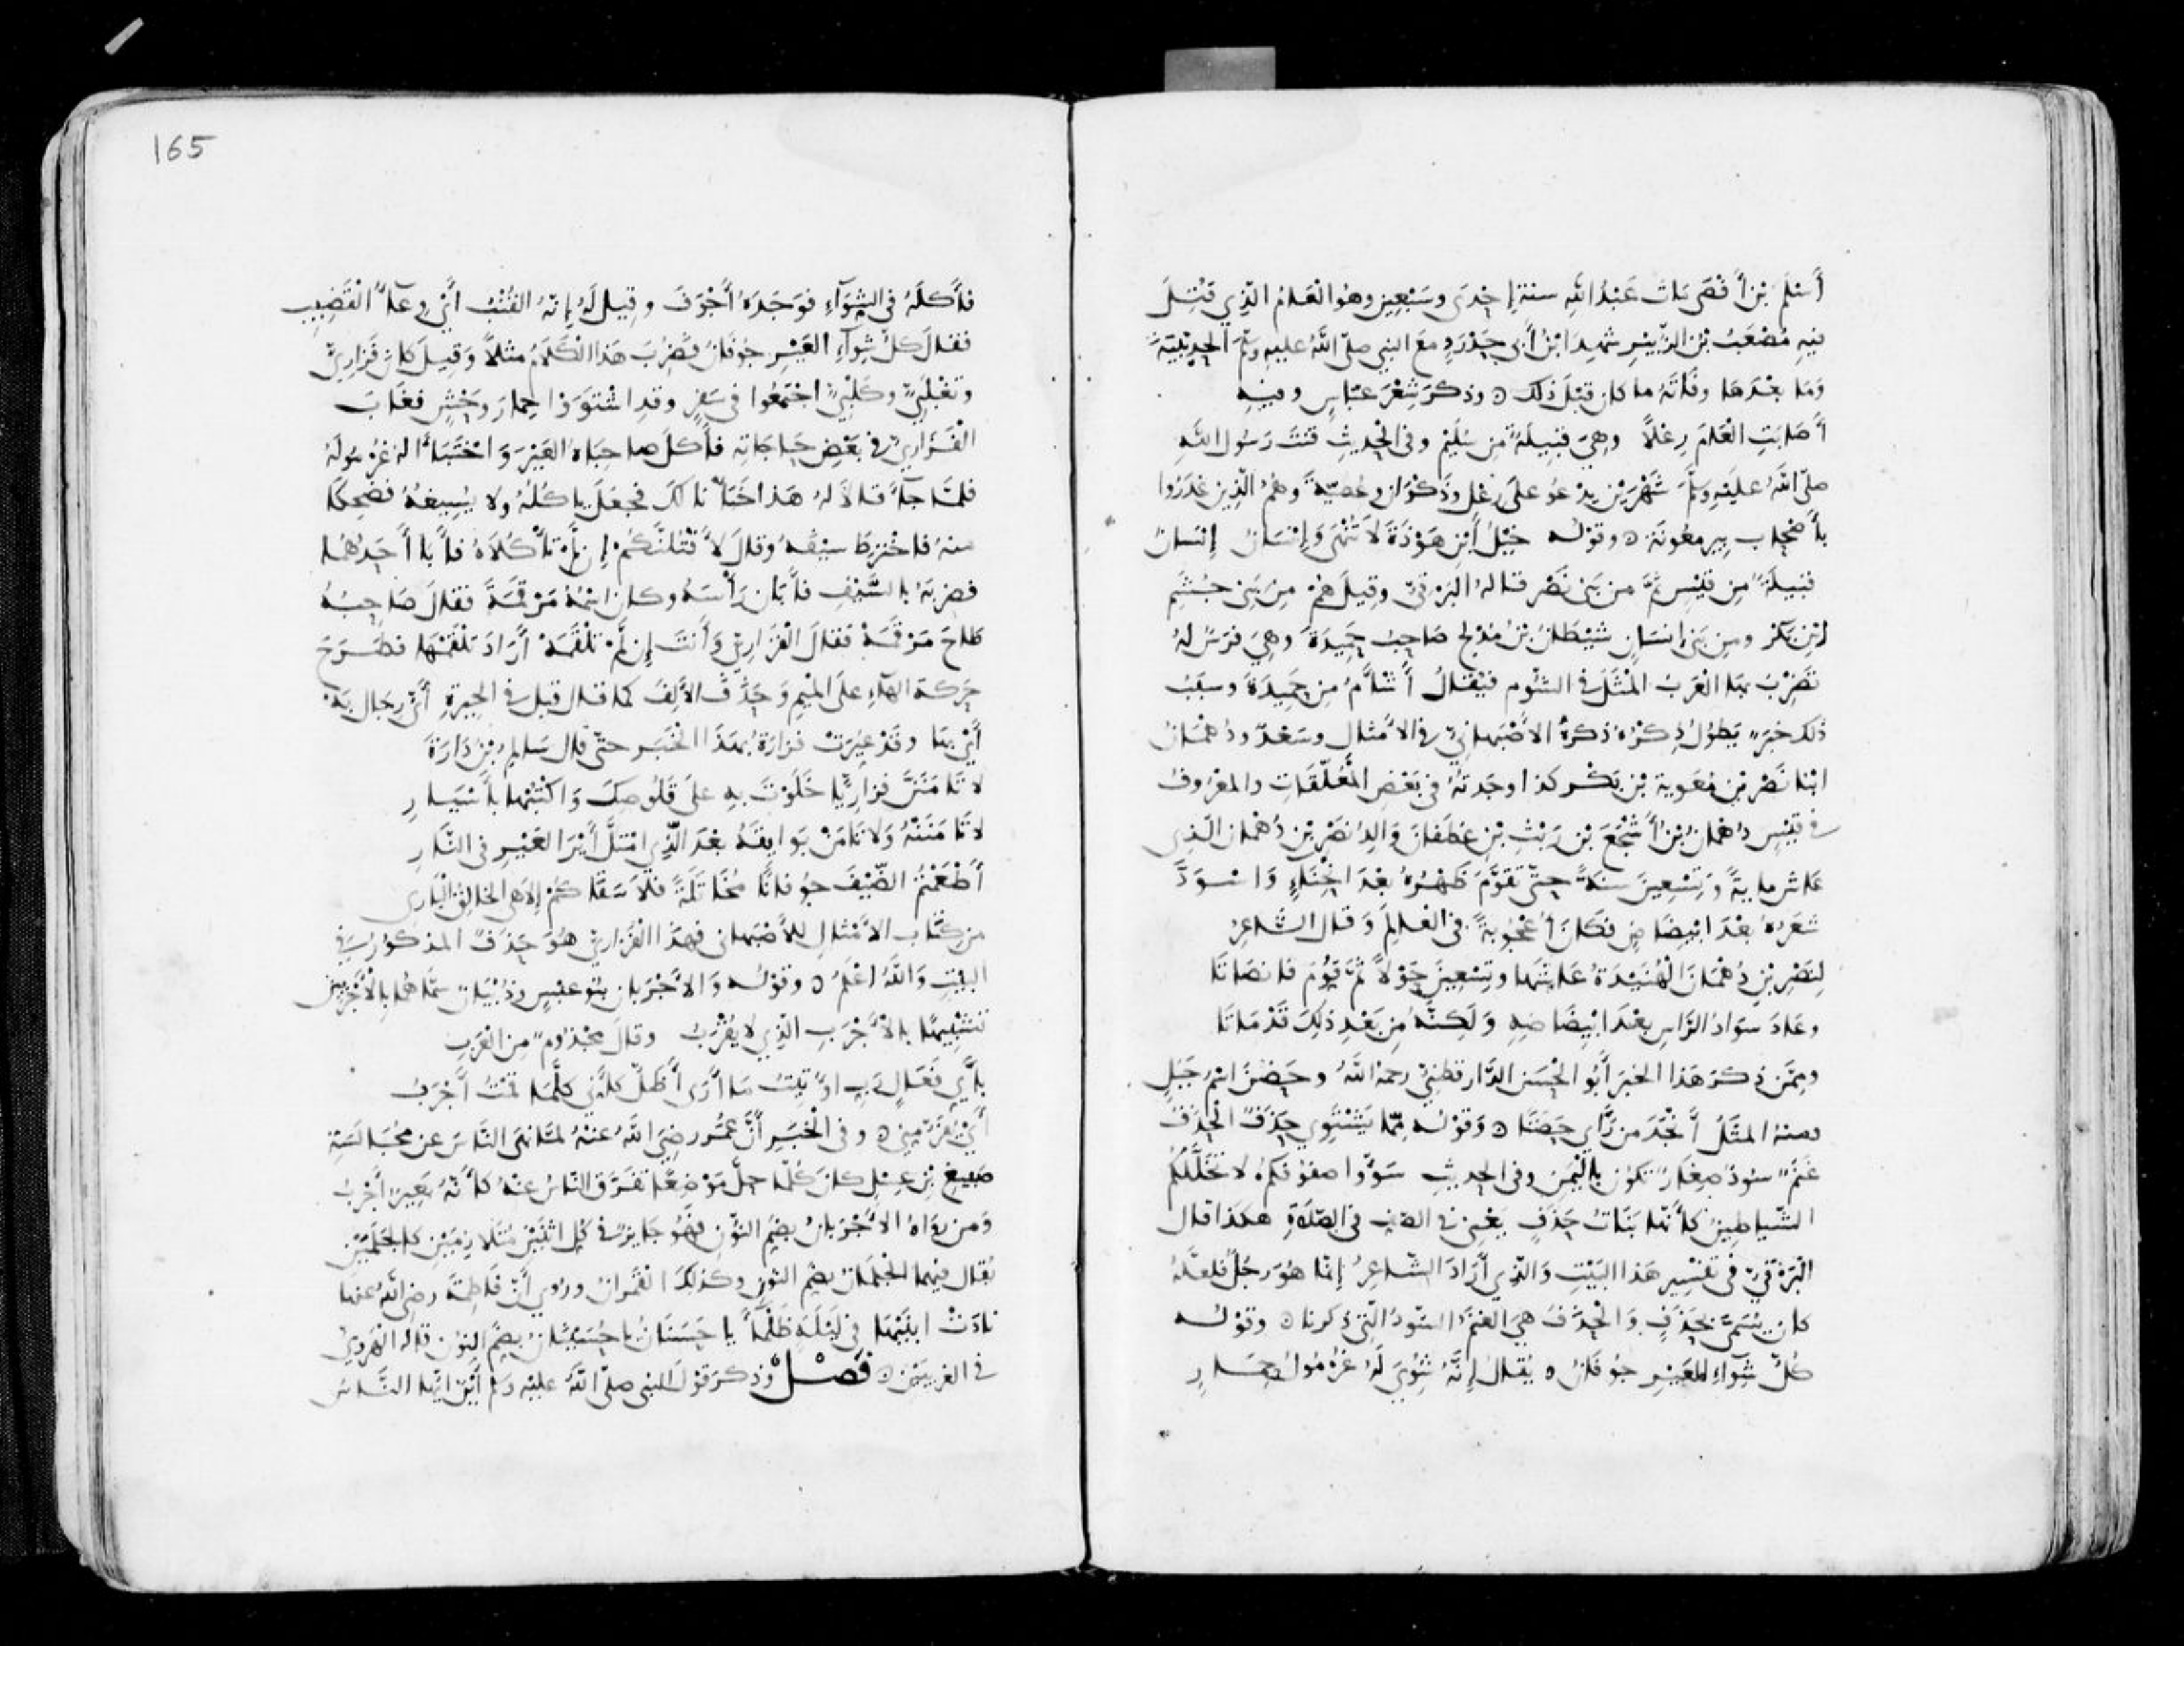 أَسْلَمَ بْنِ أَفْصَى مَاتَ عَبْدُ اللَّهِ سنة إِحْدَى وسَبْعِينَ وهُوَ الْعَامُ الَّذِي قُتِلَ
فِيهِ مُصْعَبُ بْنُ الزُّبَيْرِ شَهِدَ ابْنُ أَبِي حَدْرَدٍ مَعَ النبي صلّى اللَّهُ عليه وسلّم الْحُدَيْبِيَةَ
وَمَا بَعْدَهَا وفَاتَهُ ما كان قَبْلَ ذلك ۝ وذكَرَ شِعْرَ عَبَّاسٍ وفيه
أَصَابَتِ الْعَامَ رِعْلاً وهِيَ قَبِيلَةٌ مِن سُلَيْمٍ وفي الْحَدِيثِ قَنَتَ رَسُولُ اللَّهِ
صلّى اللَّهُ عليْهِ وسلّم شَهْرَيْنِ يَدْعُو عَلَى رِعْلٍ وذَكْوَانَ وعُصَيَّةَ وهُمُ الَّذِينَ غَدَرُوا
بأَصْحَابِ بِيرِ مَعُونَةَ ۝ وقوْلُه خَيْلُ ابْنِ هَوْذَةَ لاَ تُنْهَى وَإِنْسَانُ إِنْسَانُ
قَبِيلَةٌ مِن قَيْسٍ ثُمَّ من بَنِي نَصْرٍ قالهُ البَرْقِيُّ وقِيلَ هُمْ مِنْ بَنِي جُشَمِ
ابْنِ بَكْرٍ ومِن بَنِي إنْسَانٍ شَيْطَانُ بْنُ مُدْلِجٍ صَاحِبُ حَمِيدَةَ وهِيَ فَرَسٌ لهُ
تَضْرِبُ بِهَا الْعَرَبُ الْمَثَلَ في الشُّومِ فَيُقَالُ أَشْأَمُ مِن حَمِيدَةَ وسَبَبُ
ذلك خبرٌ يَطُولُ ذِكْرُهُ ذكرهُ الأَصْبَهانِيُّ في الأَمْثَالِ وسَعْدٌ ودُهْمَانُ
ابْنَا نَصْرِ بْنِ مُعَوية بْنِ بَكْرٍ كذا وجَدتهُ في بَعْضِ الْمُعَلَّقَاتِ والمعْرُوفُ
في قَيْسٍ دُهْمَانُ بْنُ أَشْجَعَ بْنِ رَيْثِ بْنِ غَطَفَانَ وَالِدُ نَصْرِ بْنِ دُهْمَانَ الَّذِي
عَاشَ مايةً وَتِسْعِينَ سنةً حتّى تَقَوَّمَ ظَهْرُهُ بَعْدَ انْحِنَاءٍ وَاسْوَدَّ
شَعَرُهُ بَعْدَ ابْيِضَاضٍ فكَانَ أُعْجُوبَةً في الْعَالَمِ وَقَالَ الشَّاعِرُ
لِنَصْرِ بْنِ دُهْمَانَ الْهُنَيْدَةُ عَاشَهَا وتِسْعِينَ حَوْلاً ثُمَّ قَوَّمَ فَانصَاتَا
وعَادَ سَوَادُ الرَّاسِ بعْدَ ابْيِضَاضِهِ وَلَكِنَّهُ مِنْ بَعْدِ ذلك قَدْ مَاتَا
ومِمَّن ذكَرَ هَذا الخبَرَ أَبُو الْحَسَنِ الدَّارقطنِيُّ رحمهُ اللَّهُ وحَضَنٌ اسْمُ جَبَلٍ
ومنهُ المثَلُ أَنْجَدَ مَن رَأَى حَضَنًا ۝ وَقَوْلُه مِمَّا يَشْتَوِي حَذَفٌ الْحَذَفُ
غَنَمٌ سُودٌ صِغَارٌ تَكُونُ بالْيَمَنِ وفي الحديثِ سَوُّوا صفوفكُمْ لا تَخَلَّلُكُمُ
الشّياطِينُ كأَنَّهَا بَنَاتُ حَذَفٍ يَعْنِي في الصّفِ في الصَّلاةِ هكذا قال
الْبَرْقِيُّ في تَفْسِيرِ هَذا البَيْتِ وَالَّذِي أَرَادَ الشَّاعِرُ إنّما هُوَ رَجُلٌ فَلَعَلَّهُ
كان يُسَمَّى بحَذَفٍ وَالْحَذَفُ هِيَ الغَنَمُ السُّودُ الَّتِي ذكرنا ۝ وقَوْلُه
كُلُّ شِوَاءِ الْعَيْرِ جُوفَانُ ۝ يُقَالُ إِنَّهُ شُوِيَ لَهُ غُرْمُولُ حِمَارٍ
165
فأَكلَهُ في الشِّوَآءِ فَوجَدَهُ أَجْوَفَ وقِيلَ لَهُ إِنّهُ القُنْبُ أَيْ وِعَآءُ الْقَضِيبِ
فقالَ كلُّ شِوَآءِ الْعَيْرِ جُوفَانُ فضُرِبَ هَذا الكَلاَمُ مثلاً وَقِيلَ كان فَزَارِيٌّ
وتَغْلَبِيٌّ وكَلْبِيٌّ اجْتَمَعُوا في سَفَرٍ وقدِ اشْتَوَوْا حِمَارَ وَحْشٍ فغَابَ
الْفَزَارِيُّ في بَعْضِ حَاجَاتِهِ فأَكلَ صاحِبَاهُ الْعَيْرَ وَاخْتَبَأَا لهُ غُرْمُولَهُ
فلمَّا جآءَ قالاَ لهُ هَذا خَبْأْنا لكَ فجَعَلَ يأكُلُهُ ولا يُسِيغُهُ فضَحِكَا
منهُ فاخْتَرطَ سيْفَهُ وقالَ لأَقْتُلَنَّكُمْ إِن لَمْ تَأْكُلاَهُ فأَبَا أَحَدُهُمَا
فضربَهُ بالسَّيْفِ فأَبَانَ رَأْسَهُ وكان اسْمُهُ مَرْقَمَةَ فقالَ صَاحِبُهُ
طَاحَ مَرْقَمَهْ فقالَ الْفَزَارِيُّ وَأَنتَ إِن لَمْ تَلْقَمَهْ أَرَادَ تَلْقَمْهَا فطَرَحَ
حَرَكَةَ الهَاءِ على الْمِيمِ وَحَذفَ الأَلِفَ كمَا قالَ قيل في الحِيرَةِ أَيُّ رجَالٍ بَهْ
أَيْ بِهَا وقَدْ عُيِّرَتْ فزارَةُ بهَذا الْخَبَرِ حتّى قال سَالِمُ بْنُ دَارَةَ
لا تَأْمَنَنَّ فزَارِيًّا خَلَوْتَ بِهِ علَى قَلُوصِكَ وَاكْتُبْهَا بأَسْيَارِ
لا تَأْمَنَنْهُ وَلا تَأْمَنْ بَوايِقَهُ بَعْدَ الَّذِي امْتَلَّ أَيْرَ العَيْرِ في النَّارِ
أَطْعَمْتُمُ الضَّيْفَ جُوفانًا مُخَاتَلَةً فلاَ سَقَاكُمْ إِلَاهِي الخالِقُ الْبَارِي
من كتاب الأَمْثَالِ للأَصْبَهاني فهذا الْفَزَارِيُّ هُوَ حَذَفٌ المذكُورُ في
البيْتِ وَاللَّهُ اعْلَمُ ۝ وقَوْلُه وَالأَجْرَبانِ بَنُو عبْسٍ وذُبْيَانَ سمَّاهُمَا بالأَجْرَبَيْنِ
تَشْبِيهًا بالأَجْرَبِ الَّذِي لا يُقْرَبُ وقالَ مجْذُومٌ مِن الْعَرَبِ
بأَيِّ فَعَالٍ رَبِّ أُوتِيتُ مَا أَرَى أَظَلُّ كأَنِّي كلَّمَا قُمْتُ أَجْرَبُ
أَيْ يُفَرُّ مِنِّي ۝ وفي الْخَبَرِ أَنَّ عُمَرَ رضِيَ اللَّهُ عنْهُ لمَّا نَهَى النَّاسَ عن مُجَالَسَةِ
صَبِيغِ بْنِ عِسْلٍ كان كُلَّمَا حلَّ مَوْضِعًا تَفَرَّقَ النَّاسُ عنهُ كأَنّهُ بَعِيرٌ أَجْرَبُ
وَمن رَوَاهُ الأَجْرَبَانُ بضَمِّ النُّونِ فهُوَ جَايزٌ في كُلِّ اثْنَيْنِ مُتَلازِمَيْنِ كالجَلَمَيْنِ
يُقَال فيهما الْجَلَمَانُ بضَمِّ النونِ وكذلِكَ القَمَرانُ ورُوِي أَنّ فَاطِمَةَ رضي اللهُ عنها
نادَتْ ابنَيْهَا في لَيْلَةٍ ظَلْمَآءَ يا حَسَنَانُ يا حُسَيْنَانُ بضَمِّ النُّون قاله الْهَرَوِيُّ
في الغريبَيْنِ ۝ فَصْلٌ وَذكرَ قَوْلَ النبي صلّى اللَّهُ عليْهِ وسلم أَيْنَ أيُّها النَّاسُ